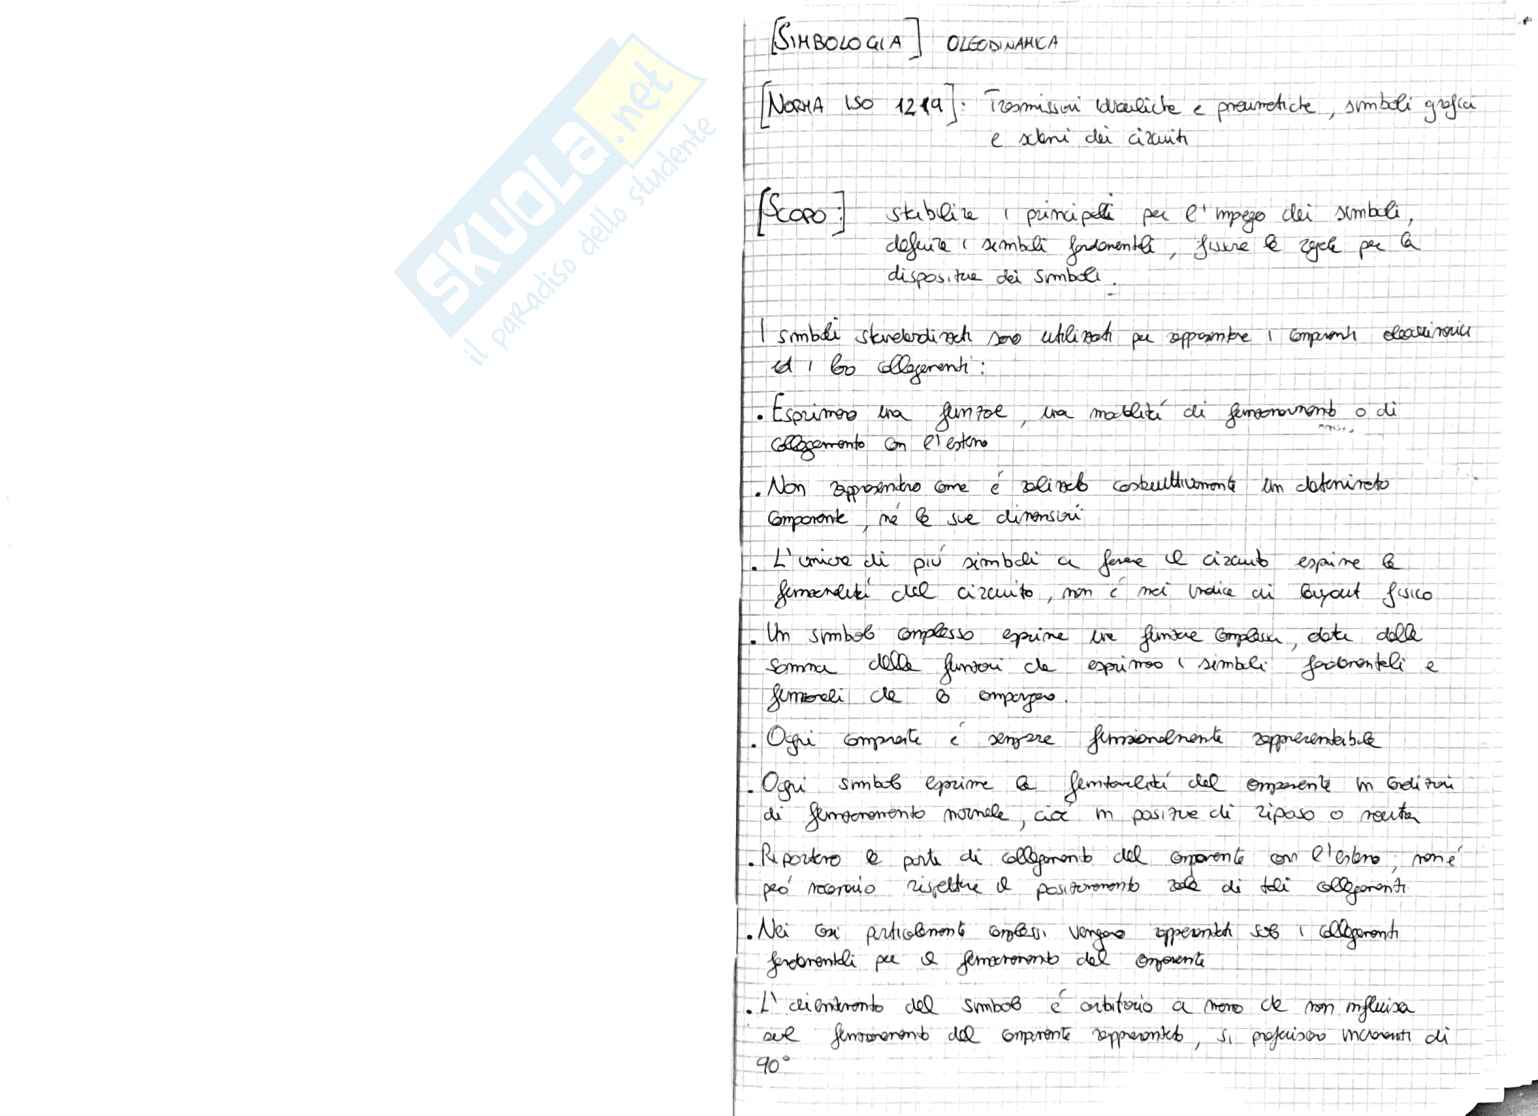 SKUOLA.net
il paradiso dello studente
[SIMBOLOGIA] OLEODINAMICA
[NORMA ISO 1219]: Trasmissioni idrauliche e pneumatiche, simboli grafici
e schemi dei circuiti
[SCOPO:] stabilire i principi per l'impiego dei simboli,
definire i simboli fondamentali, fissare le regole per la
disposizione dei simboli.
I simboli standardizzati sono utilizzati per rappresentare i componenti oleodinamici
ed i loro collegamenti:
. Esprimono una funzione, una modalitá di funzionamento o di
collegamento con l'esterno
. Non rappresentano come é realizzato costruttivamente un determinato
componente, né le sue dimensioni
. L'unione di piú simboli a formare il circuito esprime la
funzionalitá del circuito, non é mai indice di layout fisico
. Un simbolo complesso esprime una funzione complessa, data dalla
somma delle funzioni che esprimono i simboli fondamentali e
funzionali che lo compongono.
. Ogni componente é sempre funzionalmente rappresentabile
. Ogni simbolo esprime la funzionalitá del componente in condizioni
di funzionamento normale, cioé in posizione di riposo o neutra
. Riportano le porte di collegamento del componente con l'esterno, non é
peró necessario rispettare il posizionamento reale di tali collegamenti
. Nei casi particolarmente complessi vengono rappresentati solo i collegamenti
fondamentali per il funzionamento del componente
. L'orientamento del simbolo é arbitrario a meno che non influisca
sul funzionamento del componente rappresentato, si preferiscono incrementi di
90°